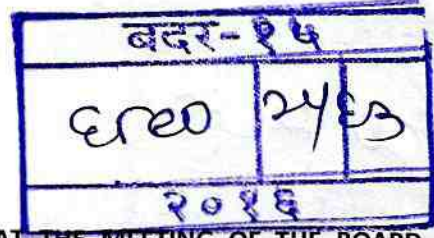 बदर-१५
२५ ६३
२०१६
AT THE MEETING OF THE BOARD